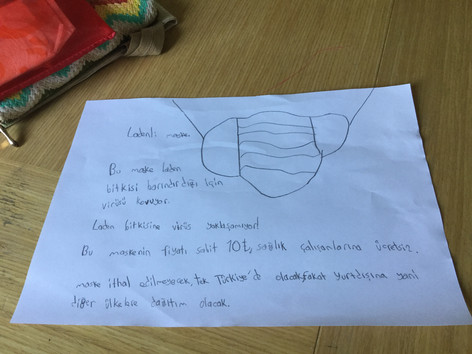 Ladenli maske
Bu maske laden
bitkisi barındırdığı için
virüsü kovuyor.
Laden bitkisine virüs yaklaşamıyor!
Bu maskenin fiyatı sabit 10 tl, sağlık çalışanlarına ücretsiz.
maske ithal edilmeyecek, tek Türkiye'de olacak, fakat yurtdışına yani
diğer ülkelere dağıtım olacak.